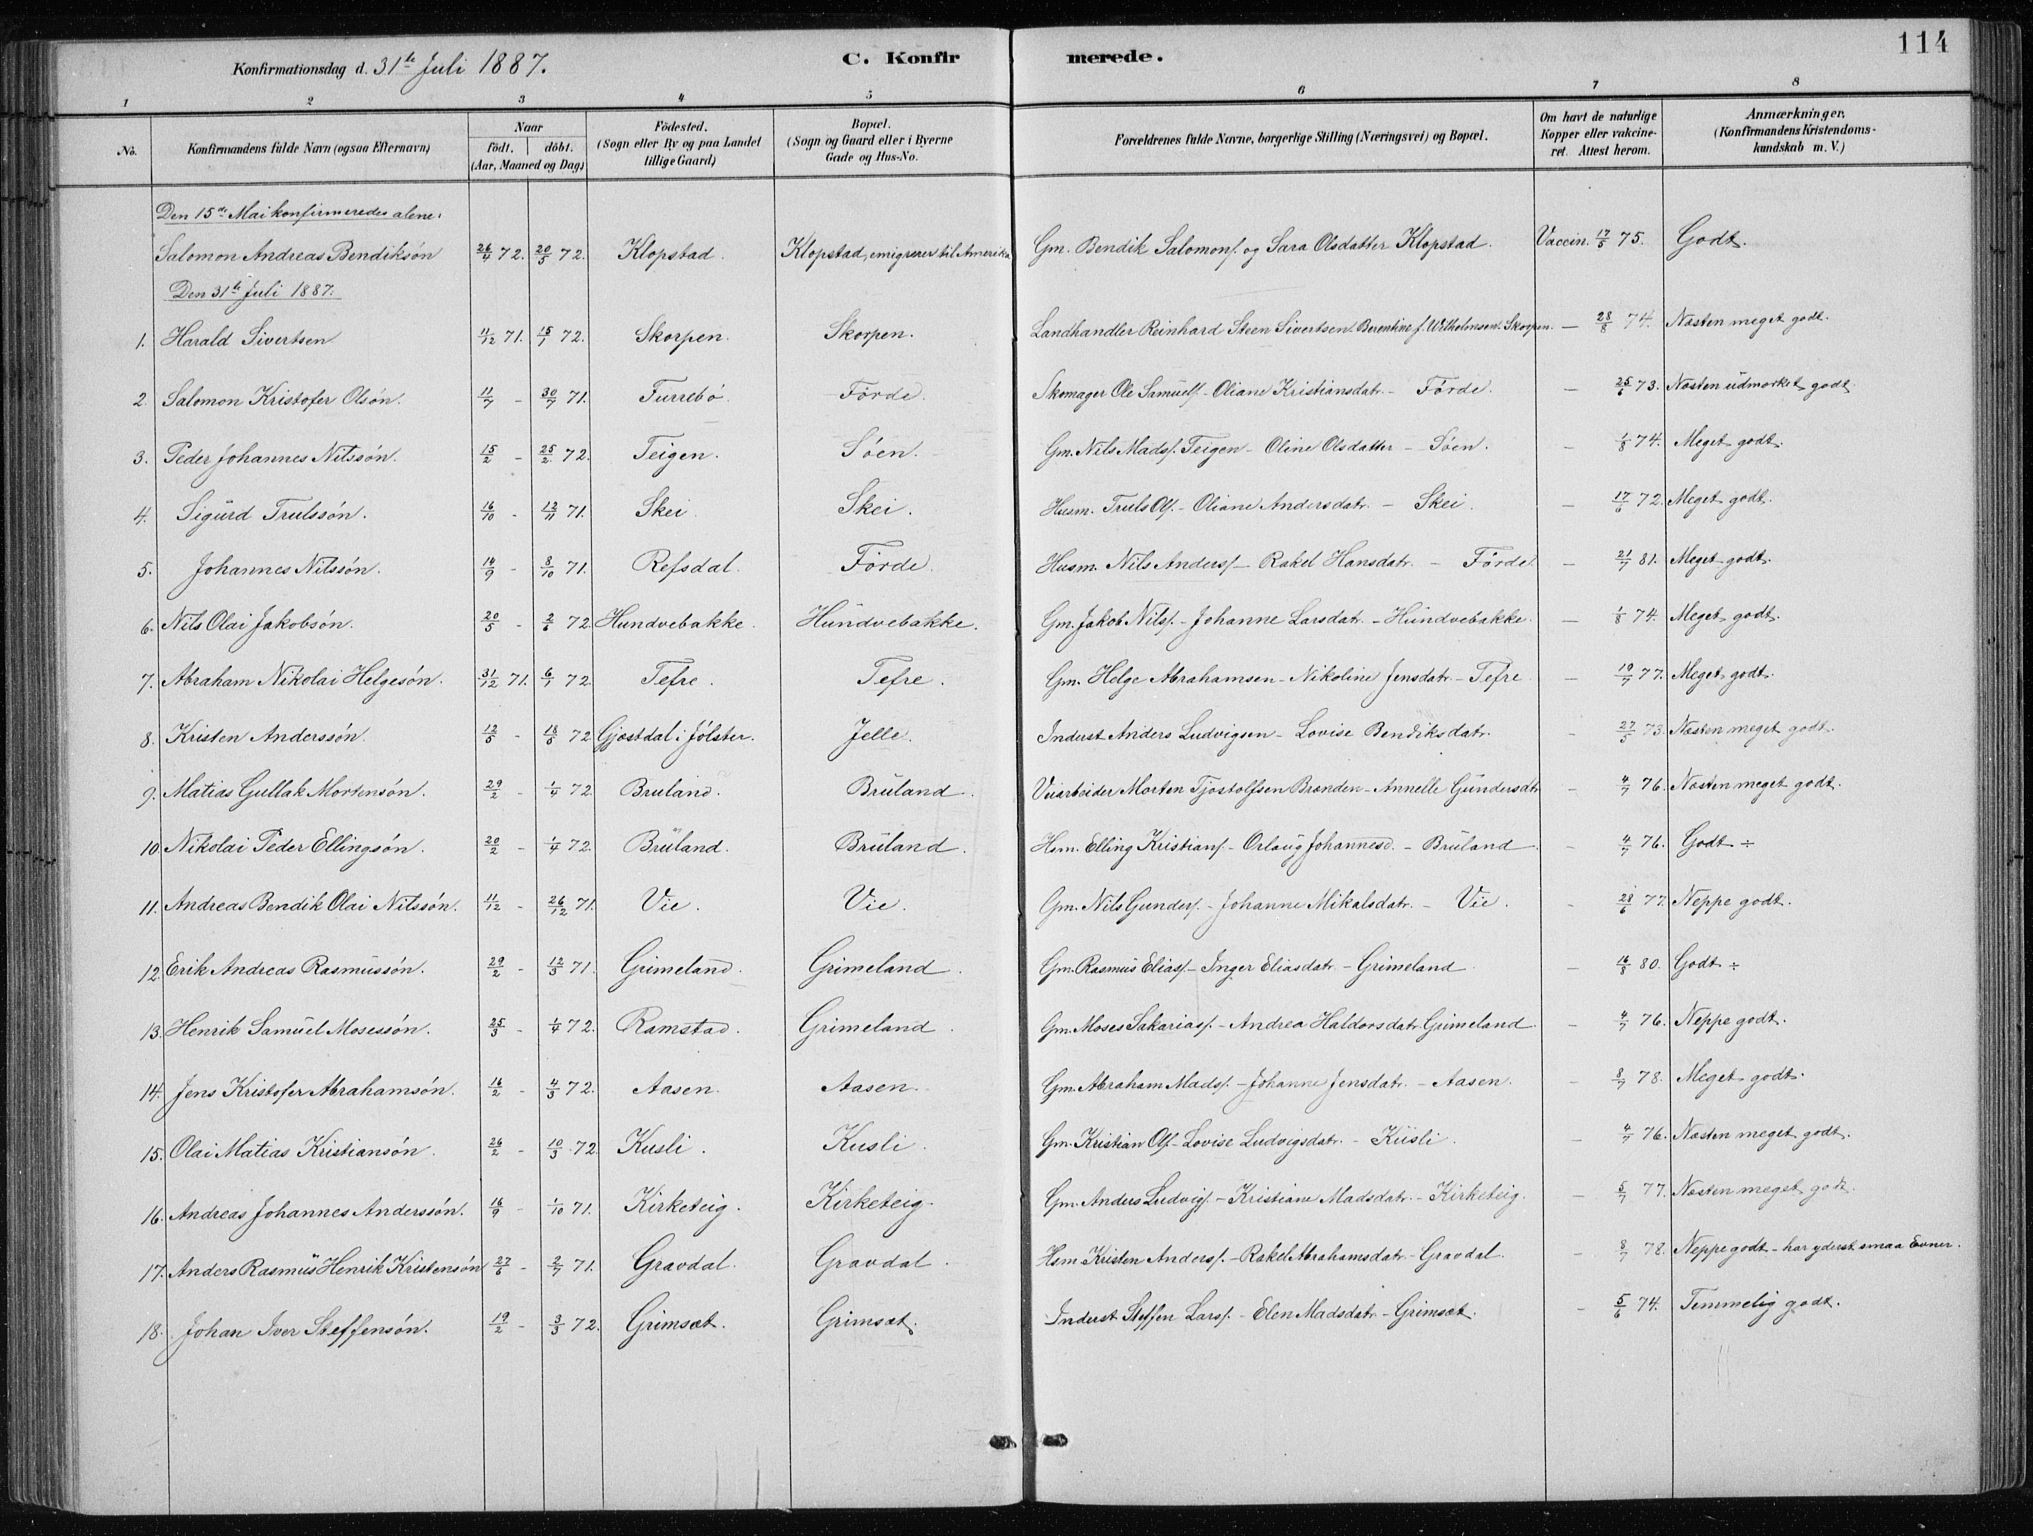 114
Konfirmationsdag d. 31te Juli 1887. C. Konfirmerede.
1 2 3 4 5 6 7 8
No. Konfirmandens fulde Navn (ogsaa Efternavn) Naar födt. döbt. (Aar, Maaned og Dag) Födested. (Sogn eller By og paa Landet tillige Gaard) Bopæl. (Sogn og Gaard eller i Byerne Gade og Hus-No. Forældrenes fulde Navne, borgerlige Stilling (Næringsvei) og Bopæl. Om havt de naturlige Kopper eller vakcineret. Attest herom. Anmærkninger. (Konfirmandens Kristendomskundskab m. V.)
Den 15de Mai konfirmeredes alene:
Salomon Andreas Bendiksön 26/4 72. 20/5 72. Klopstad. Klopstad, emigrerer til Amerika Gm. Bendik Salomons. og Sara Olsdatter Klopstad. Vaccin. 17/5 75. Godt.
Den 31te Juli 1887.
1. Harald Sivertsen 11/12 71. 15/1 72. Skorpen. Skorpen. Landhandler Reinhard Steen Sivertsen. Berentine f. Wilhelmsen. Skorpen. — 28/8 74. Næsten meget godt.
2. Salomon Kristofer Olsön. 11/7 - 30/7 71. Furrebö Förde. Skomager Ole Samuels. - Oliane Kristiansdatr. - Förde. — 25/6 73. Næsten udmærket godt.
3. Peder Johannes Nilssön. 15/2 - 25/2 72. Teigen. Söen. Gm. Nils Mads. Teigen - Oline Olsdatter - Söen. — 1/8 74. Meget godt.
4. Sigurd Trulssön. 16/10 - 12/11 71. Skei. Skei. Husm. Truls Ols. - Oliane Andersdatr. - Skei. — 17/6 72. Meget godt.
5. Johannes Nilssön. 14/9 - 8/10 71. Refsdal. Förde. Husm. Nils Anders. - Rakel Hansdatr. - Förde. — 21/7 81. Meget godt.
6. Nils Olai Jakobsön. 20/5 - 2/6 72. Hundvebakke. Hundvebakke. Gm. Jakob Nils. - Johanne Larsdatr. - Hundvebakke. — 1/8 74. Meget godt.
7. Abraham Nikolai Helgesön. 31/12 71. 6/1 72. Tefre. Tefre. Gm. Helge Abrahamsen - Nikoline Jensdatr. - Tefre — 19/7 77. Meget godt.
8. Kristen Anderssön. 12/5 - 18/6 72. Gjæstdal i Jölster. Jelle. Inderst Anders Ludvigsen - Lovise Bendiksdatr. - 27/5 73. Næsten meget godt.
9. Matias Gullak Mortensön. 29/2 - 1/4 72. Bruland. Bruland. Veiarbeider Morten Tjostolfsen Brænden - Annelle Gundersdtr - 4/7 76. Næsten meget godt.
10. Nikolai Peder Ellingsön. 20/2 - 1/4 72. Bruland. Bruland. Hsm. Elling Kristians. - Orlaug Johannesd. - Bruland - 4/7 76. Godt ÷
11. Andreas Bendik Olai Nilssön. 11/12 - 26/12 71. Vie. Vie. Gm. Nils Gunders. - Johanne Mikalsdatr. - Vie. - 28/6 77. Neppe godt.
12. Erik Andreas Rasmussön. 29/2 - 12/3 71. Grimeland. Grimeland. Gm. Rasmus Elias. - Inger Eliasdatr. - Grimeland - 16/8 80. Godt ÷
13. Henrik Samuel Mosessön. 25/3 - 1/4 72. Ramstad. Grimeland. Gm. Moses Sakarias. - Andrea Haldorsdatr. Grimeland - 4/7 76. Neppe godt.
14. Jens Kristofer Abrahamsön. 16/2 - 4/3 72. Aasen. Aasen. Gm. Abraham Mads. - Johanne Jensdatr. - Aasen. - 8/7 78. Meget godt.
15. Olai Matias Kristiansön. 26/2 - 10/3 72. Kusli. Kusli. Gm. Kristian Ols. - Lovise Ludvigsdatr. - Kusli. - 4/7 76. Næsten meget godt.
16. Andreas Johannes Anderssön. 16/9 - 1/10 71. Kirketeig. Kirketeig. Gm. Anders Ludvigs. - Kristiane Madsdatr. - Kirketeig. - 5/7 77. Næsten meget godt.
17. Anders Rasmus Henrik Kristensön 27/6 - 2/7 71. Gravdal. Gravdal. Hsm. Kristen Anders. - Rakel Abrahamsdatr. - Gravdal. - 8/7 78. Neppe godt - har yderst smaa Evner.
18. Johan Iver Steffensön. 19/2 - 3/3 72. Grimsæt. Grimsæt. Inderst Steffen Lars. - Elen Madsdatr. - Grimsæt. - 5/6 74. Temmelig godt.